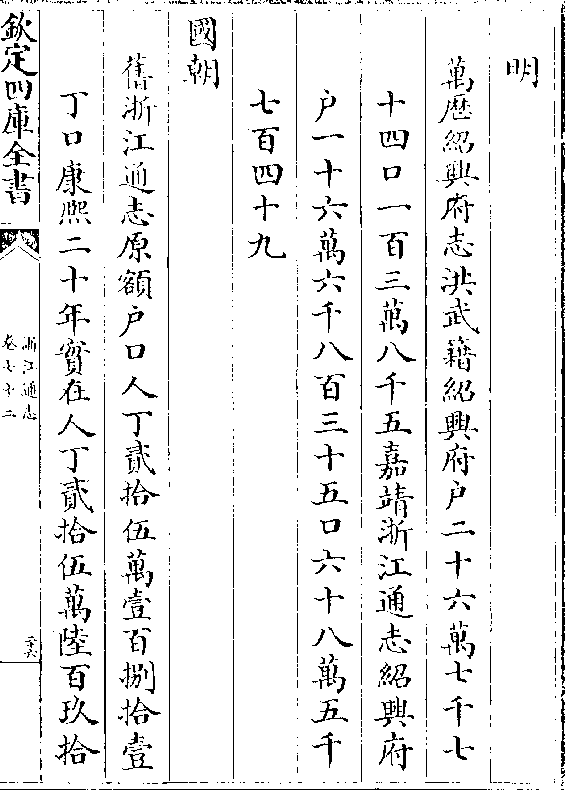 明
萬歴紹興府志洪武籍紹興府户二十六萬七千七
十四口一百三萬八千五嘉靖浙江通志紹興府
户一十六萬六千八百三十五口六十八萬五千
七百四十九
國朝
舊浙江通志原額户口人丁貳拾伍萬壹百捌拾壹
丁口康熙二十年實在人丁貳拾伍萬陸百玖拾
欽定四庫全書
浙江通志
卷七十二